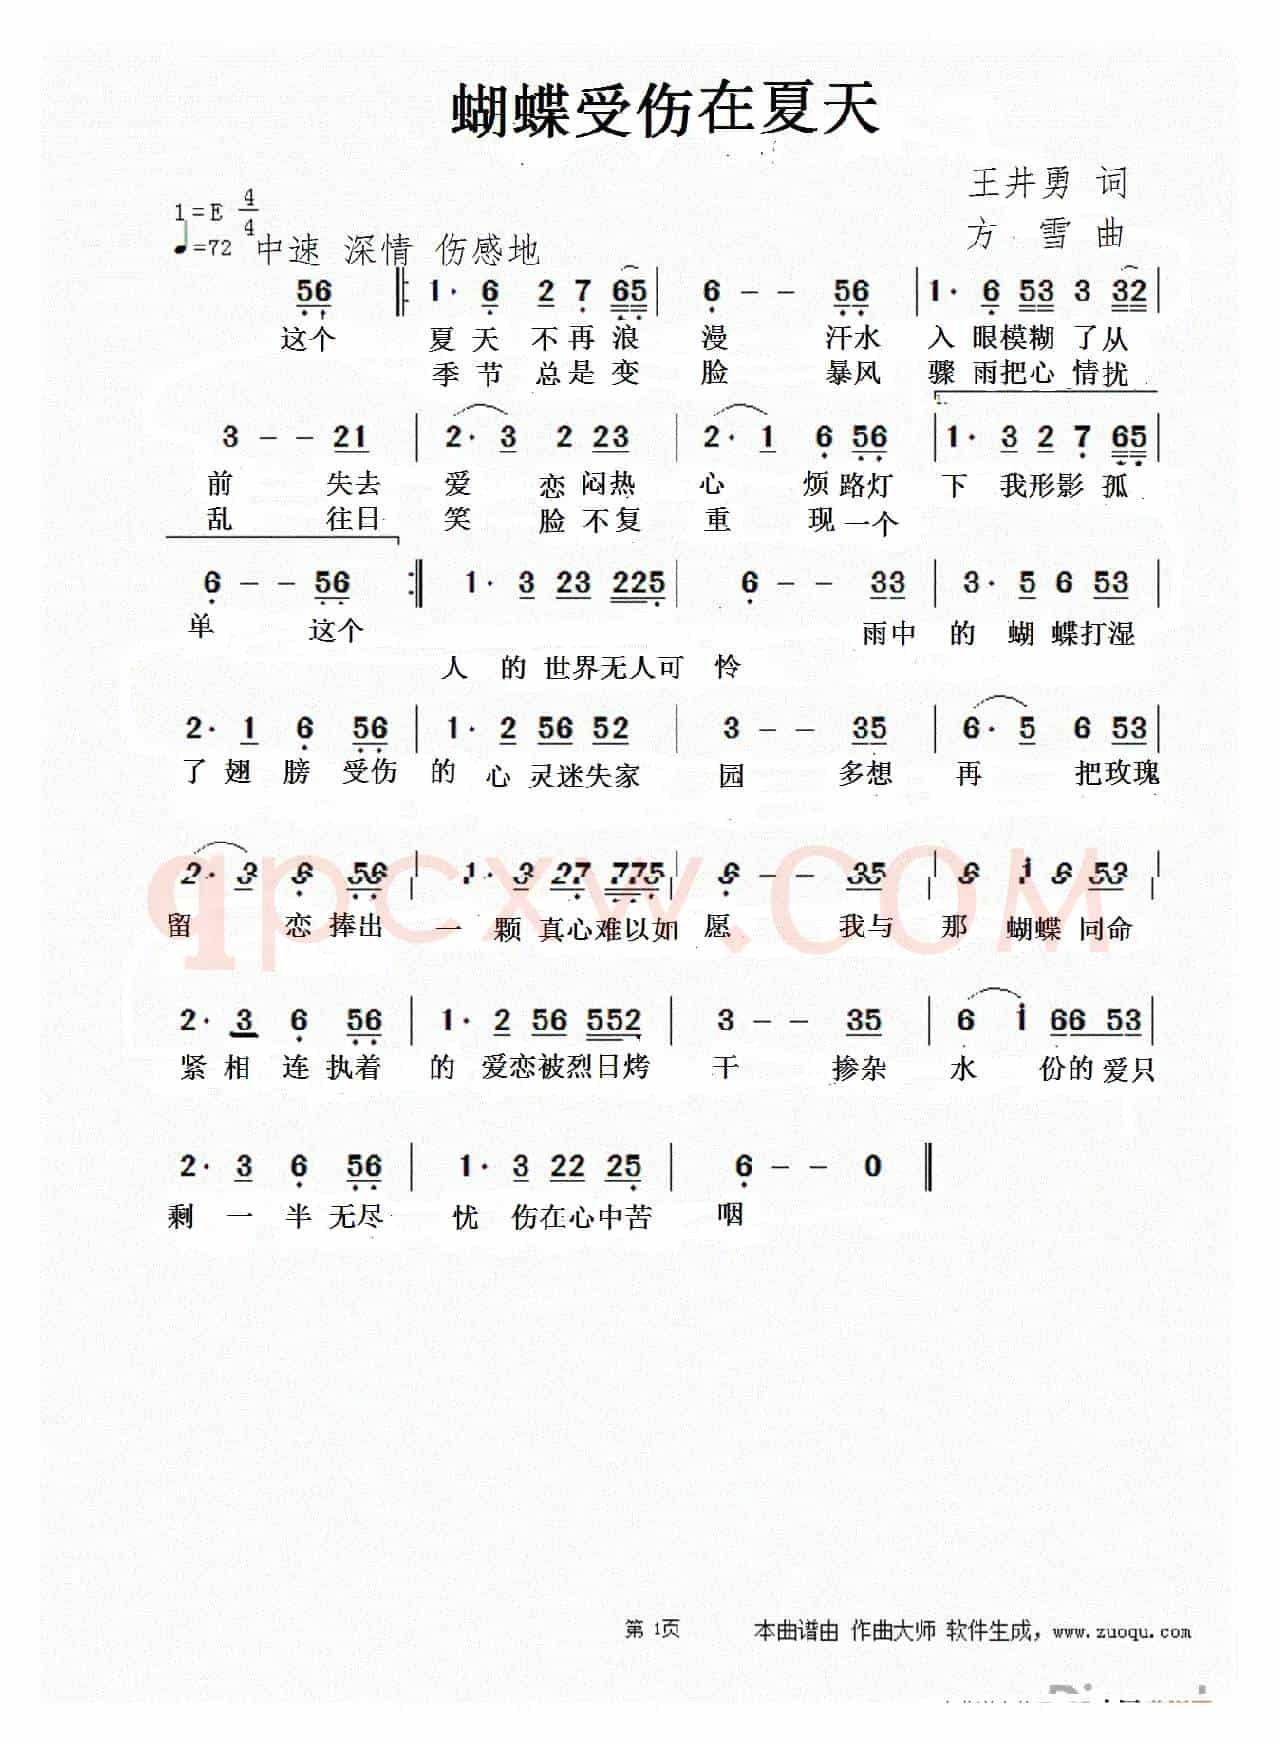 蝴蝶受伤在夏天
王井勇 词
1=E 4/4
方 雪 曲
♩=72 中速 深情 伤感地
56 ‖: 1· 6 2 7 65 | 6 - - 56 | 1· 6 53 3 32 |
这个 夏 天 不 再 浪 漫 汗水 入 眼模糊 了从
季 节 总 是 变 脸 暴风 骤 雨把心 情扰
1.
3 - - 21 | 2· 3 2 23 | 2· 1 6 56 | 1· 3 2 7 65 |
前 失去 爱 恋 闷热 心 烦 路灯 下 我形影 孤
乱 往日 笑 脸 不复 重 现 一个
6 - - 56 :‖ 1· 3 23 225 | 6 - - 33 | 3· 5 6 53 |
单 这个 雨中 的 蝴 蝶打湿
人 的 世界无人可 怜
2· 1 6 56 | 1· 2 56 52 | 3 - - 35 | 6· 5 6 53 |
了 翅 膀 受伤 的 心 灵迷失家 园 多想 再 把玫瑰
qpcxw.COM
2· 3 6 56 | 1· 3 27 775 | 6 - - 35 | 6 1 6 53 |
留 恋 捧出 一 颗 真心难以如 愿 我与 那 蝴蝶 同命
2· 3 6 56 | 1· 2 56 552 | 3 - - 35 | 6 1 66 53 |
紧 相 连 执着 的 爱恋被烈日烤 干 掺杂 水 份的 爱只
2· 3 6 56 | 1· 3 22 25 | 6 - - 0 ‖
剩 一 半 无尽 忧 伤在心中苦 咽
第 1页 本曲谱由 作曲大师 软件生成，www.zuoqu.com